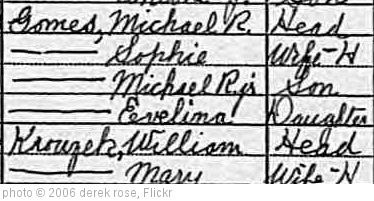 Gomes, Michael R. Head
—— Sophie Wife-H
—— Michael R. jr Son
—— Evelina Daughter
Krouzek, William Head
—— Mary Wife-H
photo © 2006 derek rose, Flickr